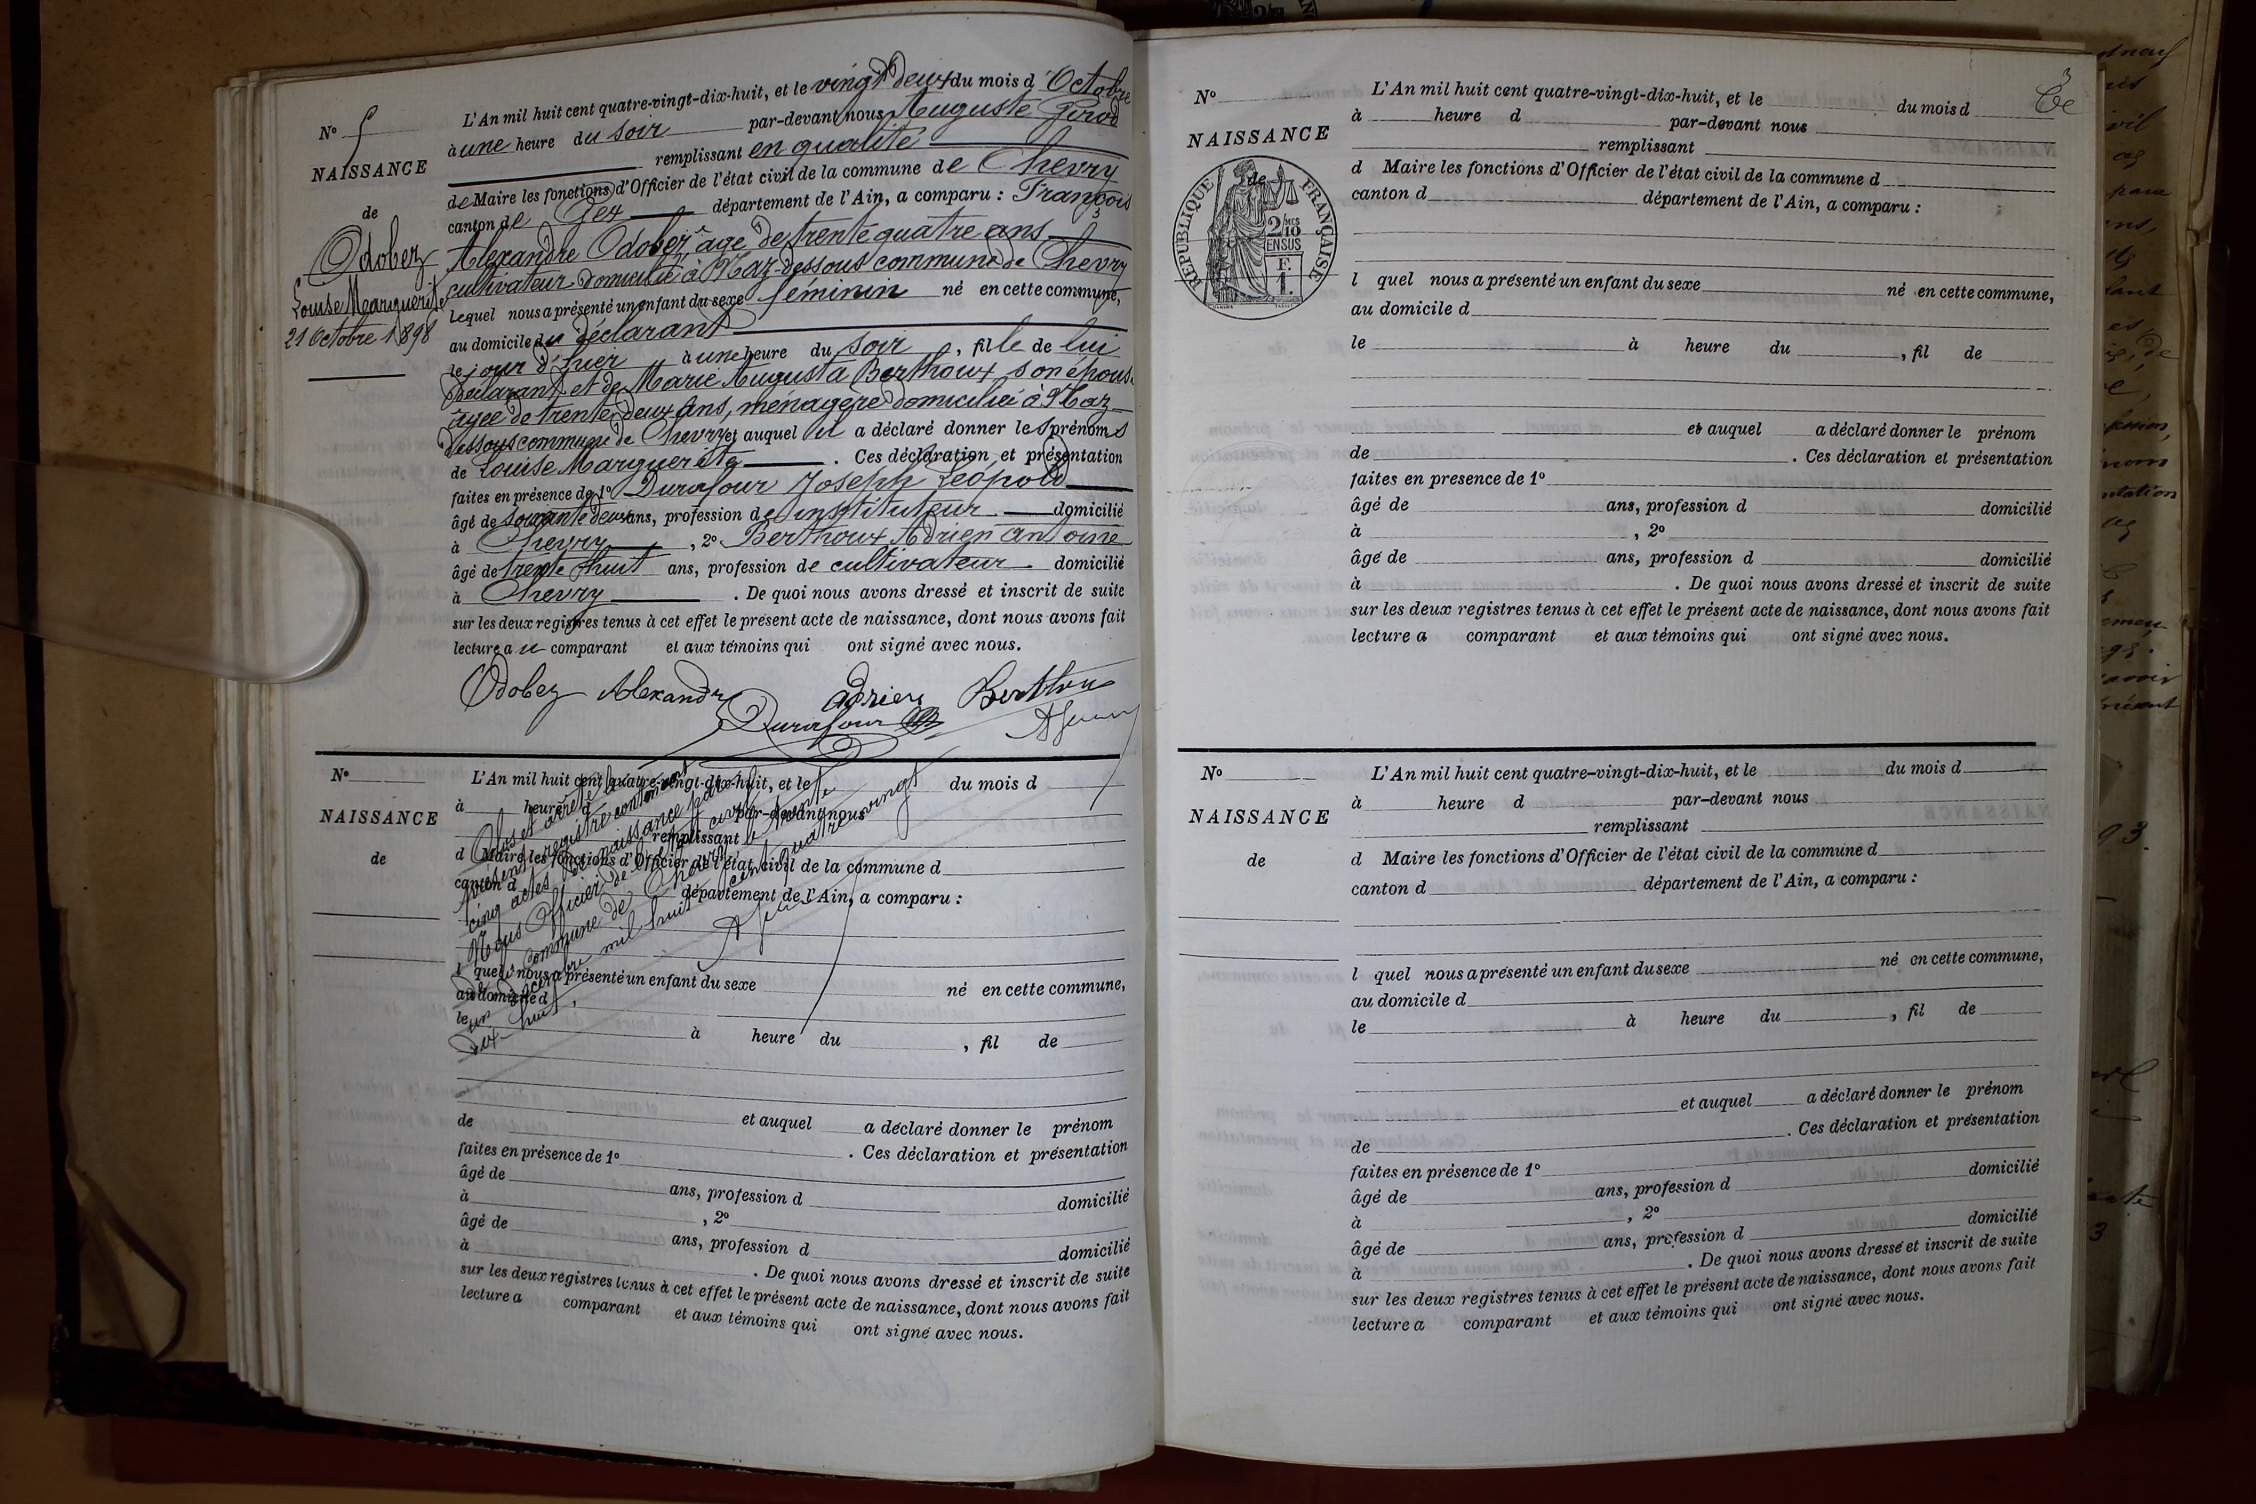 N° 5
NAISSANCE
de
Odobez
Louise Marguerite
21 Octobre 1898
L'An mil huit cent quatre-vingt-dix-huit, et le vingt deux du mois d'Octobre
à une heure du soir par-devant nous Auguste Girod
remplissant en qualité
de Maire les fonctions d'Officier de l'état civil de la commune de Chevry
canton de Gex département de l'Ain, a comparu : François
Alexandre Odobez âgé de trente quatre ans
cultivateur domicilié à Naz-dessous commune de Chevry
lequel nous a présenté un enfant du sexe féminin né en cette commune,
au domicile du déclarant
le jour d'hier à une heure du soir, fille de lui
déclarant et de Marie Augusta Berthoux son épouse
âgée de trente deux ans, ménagère domiciliée à Naz-
dessous commune de Chevry et auquel il a déclaré donner les prénoms
de Louise Marguerite. Ces déclaration et présentation
faites en présence de 1° Durafour Joseph Léopold
âgé de soixante deux ans, profession de instituteur domicilié
à Chevry, 2° Berthoux Adrien Antoine
âgé de trente huit ans, profession de cultivateur domicilié
à Chevry. De quoi nous avons dressé et inscrit de suite
sur les deux registres tenus à cet effet le présent acte de naissance, dont nous avons fait
lecture au comparant et aux témoins qui ont signé avec nous.
Odobez Alexandre Adrien Berthoux
Durafour
N°
NAISSANCE
de
L'An mil huit cent quatre-vingt-dix-huit, et le du mois d
à heure d par-devant nous
remplissant
d Maire les fonctions d'Officier de l'état civil de la commune d
canton d département de l'Ain, a comparu :
l quel nous a présenté un enfant du sexe né en cette commune,
au domicile d
le à heure du , fil de
et auquel a déclaré donner le prénom
de . Ces déclaration et présentation
faites en présence de 1°
âgé de ans, profession d domicilié
à , 2°
âgé de ans, profession d domicilié
à . De quoi nous avons dressé et inscrit de suite
sur les deux registres tenus à cet effet le présent acte de naissance, dont nous avons fait
lecture a comparant et aux témoins qui ont signé avec nous.
Clos et arrêté le
présent registre contenant
cinq actes de naissance par
Nous Officier de l'état civil
de la commune de Chevry, le trente
un décembre mil huit cent quatre vingt
dix-huit.
3
N°
NAISSANCE
de
REPUBLIQUE FRANÇAISE
2/10 MES
EN SUS
F.
1.
L'An mil huit cent quatre-vingt-dix-huit, et le du mois d
à heure d par-devant nous
remplissant
d Maire les fonctions d'Officier de l'état civil de la commune d
canton d département de l'Ain, a comparu :
l quel nous a présenté un enfant du sexe né en cette commune,
au domicile d
le à heure du , fil de
et auquel a déclaré donner le prénom
de . Ces déclaration et présentation
faites en presence de 1°
âgé de ans, profession d domicilié
à , 2°
âgé de ans, profession d domicilié
à . De quoi nous avons dressé et inscrit de suite
sur les deux registres tenus à cet effet le présent acte de naissance, dont nous avons fait
lecture a comparant et aux témoins qui ont signé avec nous.
N°
NAISSANCE
de
L'An mil huit cent quatre-vingt-dix-huit, et le du mois d
à heure d par-devant nous
remplissant
d Maire les fonctions d'Officier de l'état civil de la commune d
canton d département de l'Ain, a comparu :
l quel nous a présenté un enfant du sexe né en cette commune,
au domicile d
le à heure du , fil de
et auquel a déclaré donner le prénom
de . Ces déclaration et présentation
faites en présence de 1°
âgé de ans, profession d domicilié
à , 2°
âgé de ans, profession d domicilié
à . De quoi nous avons dressé et inscrit de suite
sur les deux registres tenus à cet effet le présent acte de naissance, dont nous avons fait
lecture a comparant et aux témoins qui ont signé avec nous.